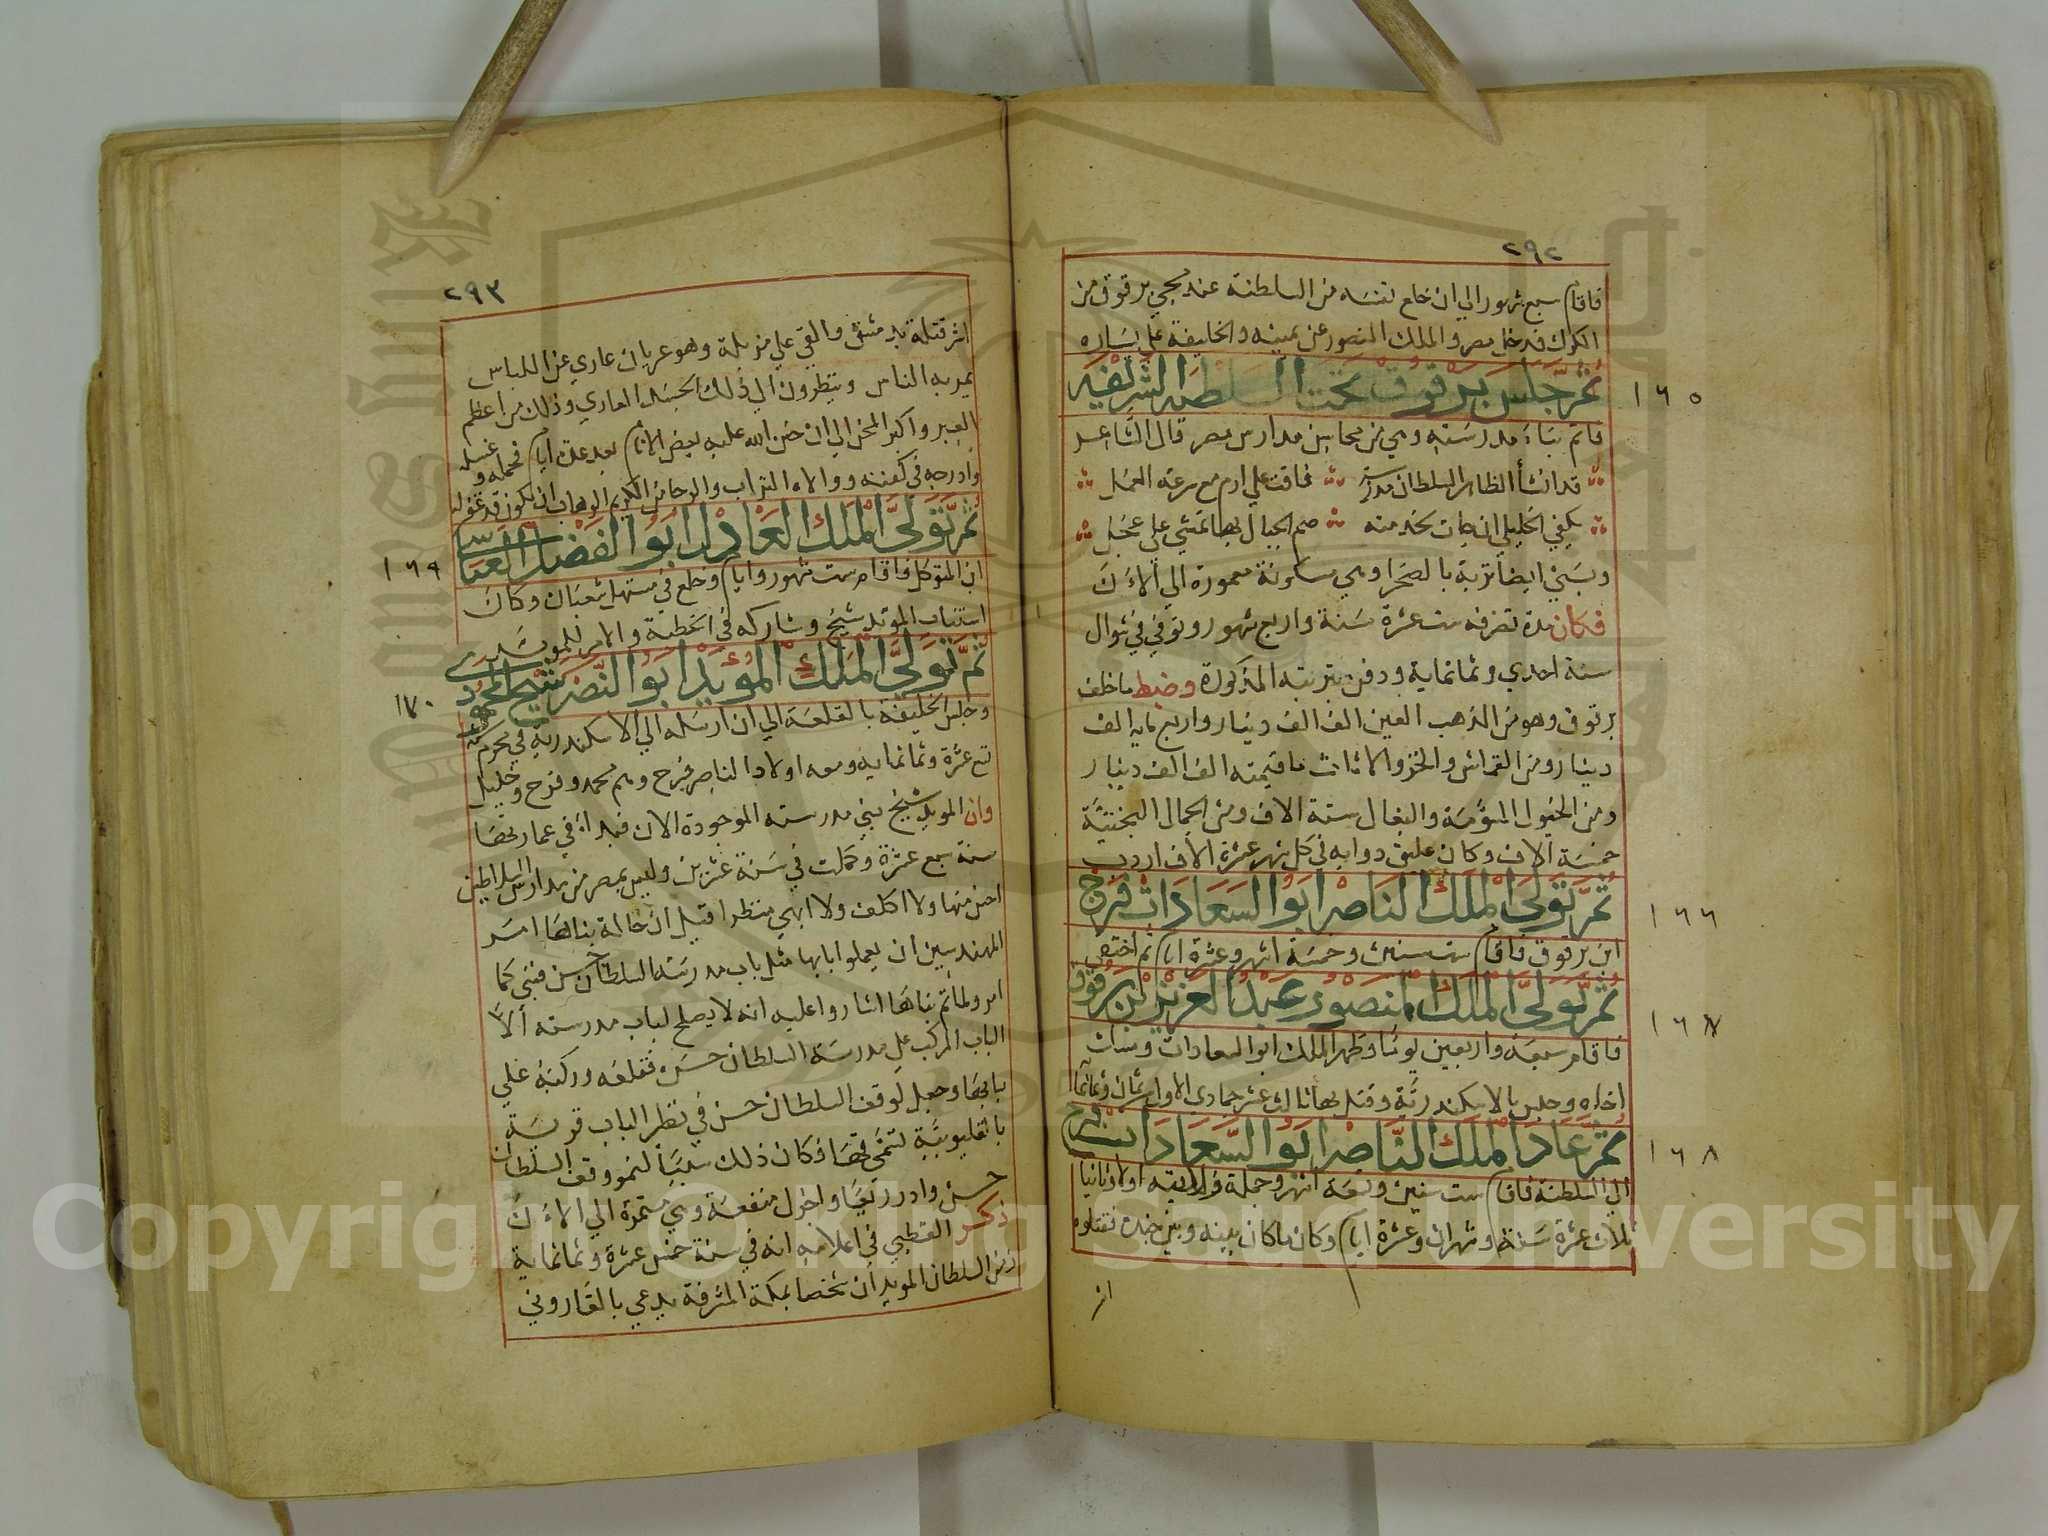 ٢٩٢
فاقام سبع شهور الي ان خلع نفسه من السلطنة عند مجي برقوق من
الكرك فدخل مصر والملك المنصور عن يمينه والخليفة علي يساره
ثم جلس برقوق تحت السلطنه الشريفه
١٦٥
فاتم بناء مدرسته وهي من محاسن مدارس مصر قال الشاعر
قد انشأ الظاهر السلطان مدرسة فاقت علي ارم مع سرعة العمل
يكفي الخليلي ان جات لخدمته صم الجبال بها تمشي علي عجل
وبني ايضا تربة بالصحرا وهي مسكونة معمورة الي الآن
فكان مدة تصرفه ست عشرة سنة واربع شهور وتوفي في شوال
سنة احدي وثمانماية ودفن بتربته المذكورة وضبط ما خلف
برقوق وهو من الذهب العين الف الف دينار واربع ماية الف
دينار ومن القماش والخز والاثاث ما قيمته الف الف دينار
ومن الخيول المسومة والبغال ستة الاف ومن الجمال البختية
خمسة آلاف وكان عليق دوابه في كل شهر عشرة الاف اردب
ثم تولي الملك الناصر ابو السعادات فرج
١٦٦
ابن برقوق فاقام ست سنين وخمسة اشهر وعشرة ايام ثم اختفي
ثم تولي الملك المنصور عبد العزيز بن برقوق
١٦٧
فاقام سبعة واربعين يوما وظهر الملك ابو السعادات ومسك
اخاه وحبس بالاسكندرية وقتل بها ثالث عشر جمادي الاول سنة ثمان وثمانماية
ثم عاد الملك الناصر ابو السعادات فرج
١٦٨
الي السلطنة فاقام ست سنين وتسعة اشهر وجملة ولايته اولا وثانيا
ثلاث عشرة سنة وشهران وعشرة ايام وكان ما كان بينه وبين جنده فقتلوه
اشر
٢٩٣
اشر قتلة بدمشق والقي علي مزبلة وهو عريان عاري عن اللباس
يمر به الناس وينظرون الي ذلك الجسد العاري وذلك من اعظم
العبر واكبر المحن الي ان حنن الله عليه بعض الانام بعد عدة ايام فحمله وغسله
وادرجه في كفنه وواراه التراب والرجا من الكريم الوهاب ان يكون قد غفر له
ثم تولي الملك العادل ابو الفضل العباس
١٦٩
ابن المتوكل فاقام ست شهور وايام وخلع في مستهل شعبان وكان
استناب المؤيد شيخ وشاركه في الخطبة والامر للمويد
ثم تولي الملك المؤيد ابو النصر شيخ المحمودي
١٧٠
وجلس الخليفة بالقلعة الي ان ارسله الي الاسكندرية في محرم سنة
تسع عشرة وثمانمايه ومعه اولاد الناصر فرج وهم محمد وفرج وخليل
وان المويد شيخ بني مدرسته الموجودة الان فبدا في عمارتها
سنة سبع عشرة وكملت في سنة عشرين وليس بمصر من مدارس السلاطين
احسن منها ولا اكلف ولا ابهي منظرا قيل ان حالة بنائها امر
المهندسين ان يعملوا بابها مثل باب مدرسة السلطان حسن فبني كما
امر ولما تم بناها اشاروا عليه انه لا يصلح لباب مدرسته الا
الباب المركب علي مدرسة السلطان حسن فقلعه وركبه علي
بابها وجعل لوقف السلطان حسن في نظير الباب قرية
بالقليوبية لتسمي قها فكان ذلك سببا لنمو وقف السلطان
حسن وادر ريعا واجزل منفعة وهي مستمرة الي الآن
ذكر القطبي في اعلامه انه في سنة خمس عشرة وثمانماية
زمن السلطان المويد ان شخصا بمكة المشرفة يدعي بالقاروني
Copyright © King Saud University